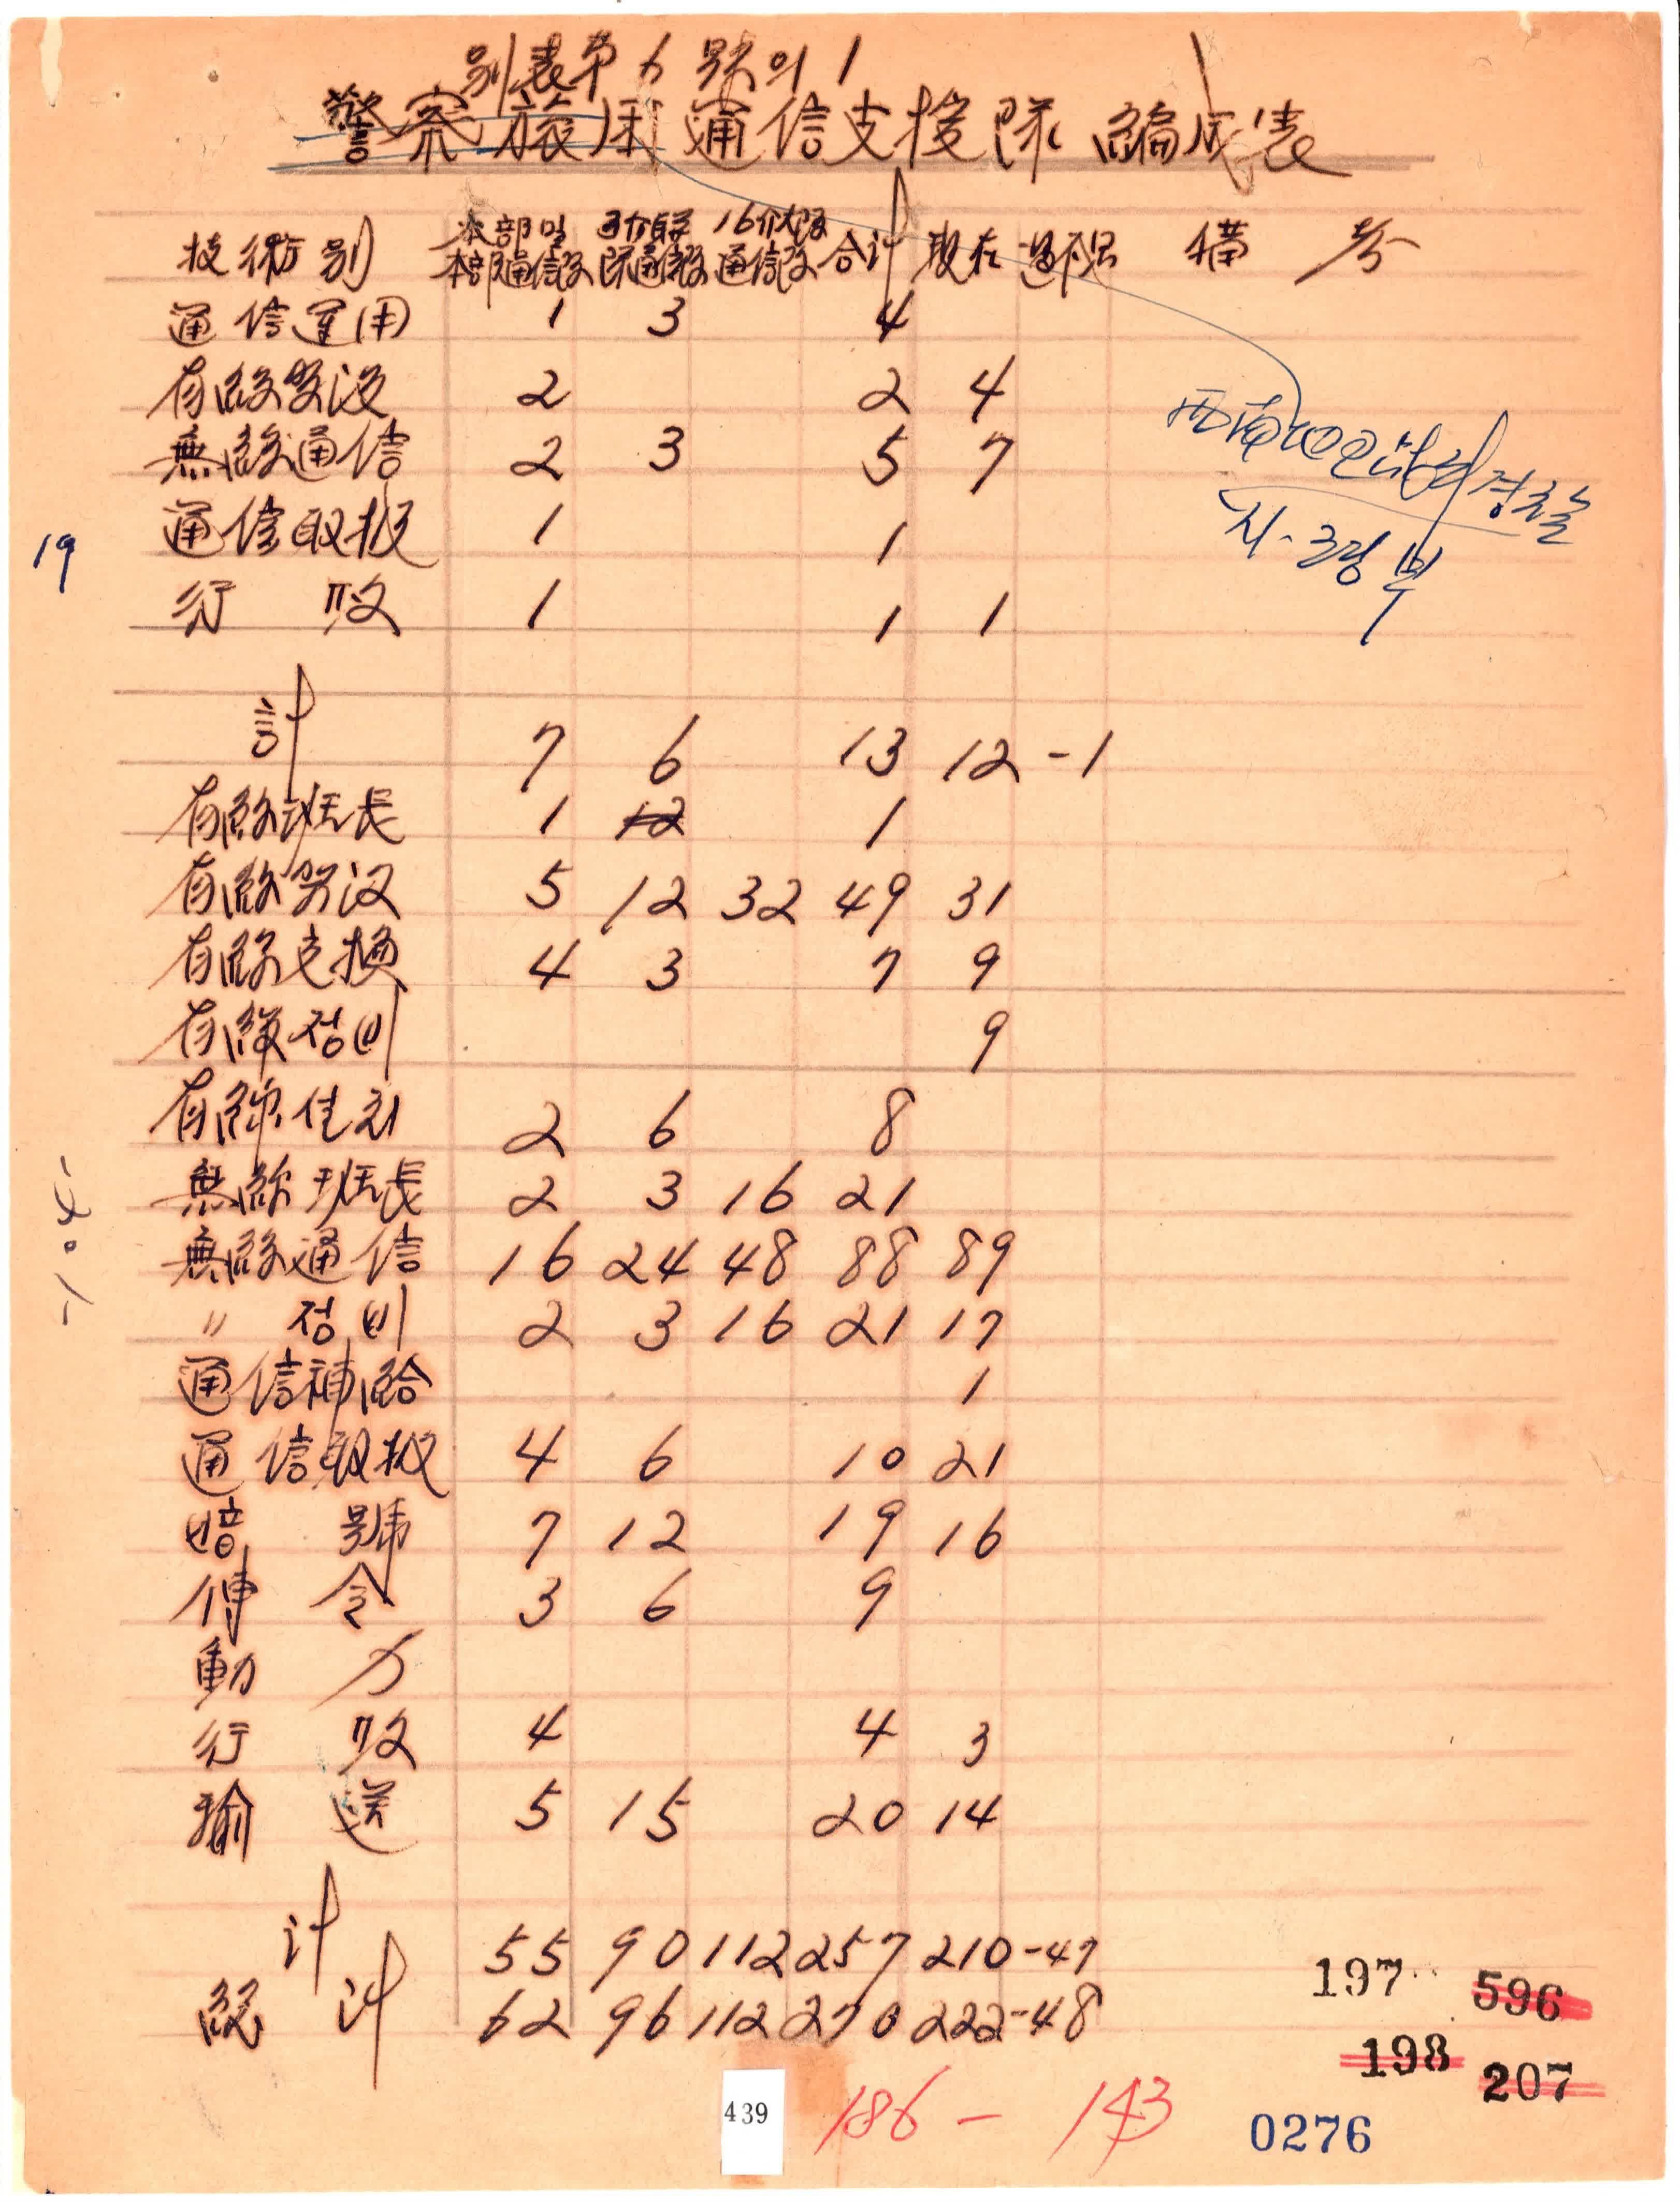 別表第 6 号의 1
警察旅団通信支援隊 編成表
技術別 本部및本部通信隊 3个聯隊通信隊 16个大隊通信隊 合計 現在 過不足 備考
通信運用 1 3 4
有線架設 2 2 4
無線通信 2 3 5 7
通信取扱 1 1
行政 1 1 1
計 7 6 13 12 -1
有線班長 1 12 1
有線架設 5 12 32 49 31
有線交換 4 3 7 9
有線정비 9
有線 2 6 8
無線班長 2 3 16 21
無線通信 16 24 48 88 89
〃 정비 2 3 16 21 17
通信補給 1
通信取扱 4 6 10 21
暗號 7 12 19 16
傳令 3 6 9
動力
行政 4 4 3
輸送 5 15 20 14
計 55 90 112 257 210 -47
総計 62 96 112 270 222 -48
경찰
사령부
19
197 596
198 207
439 186 - 143
0276